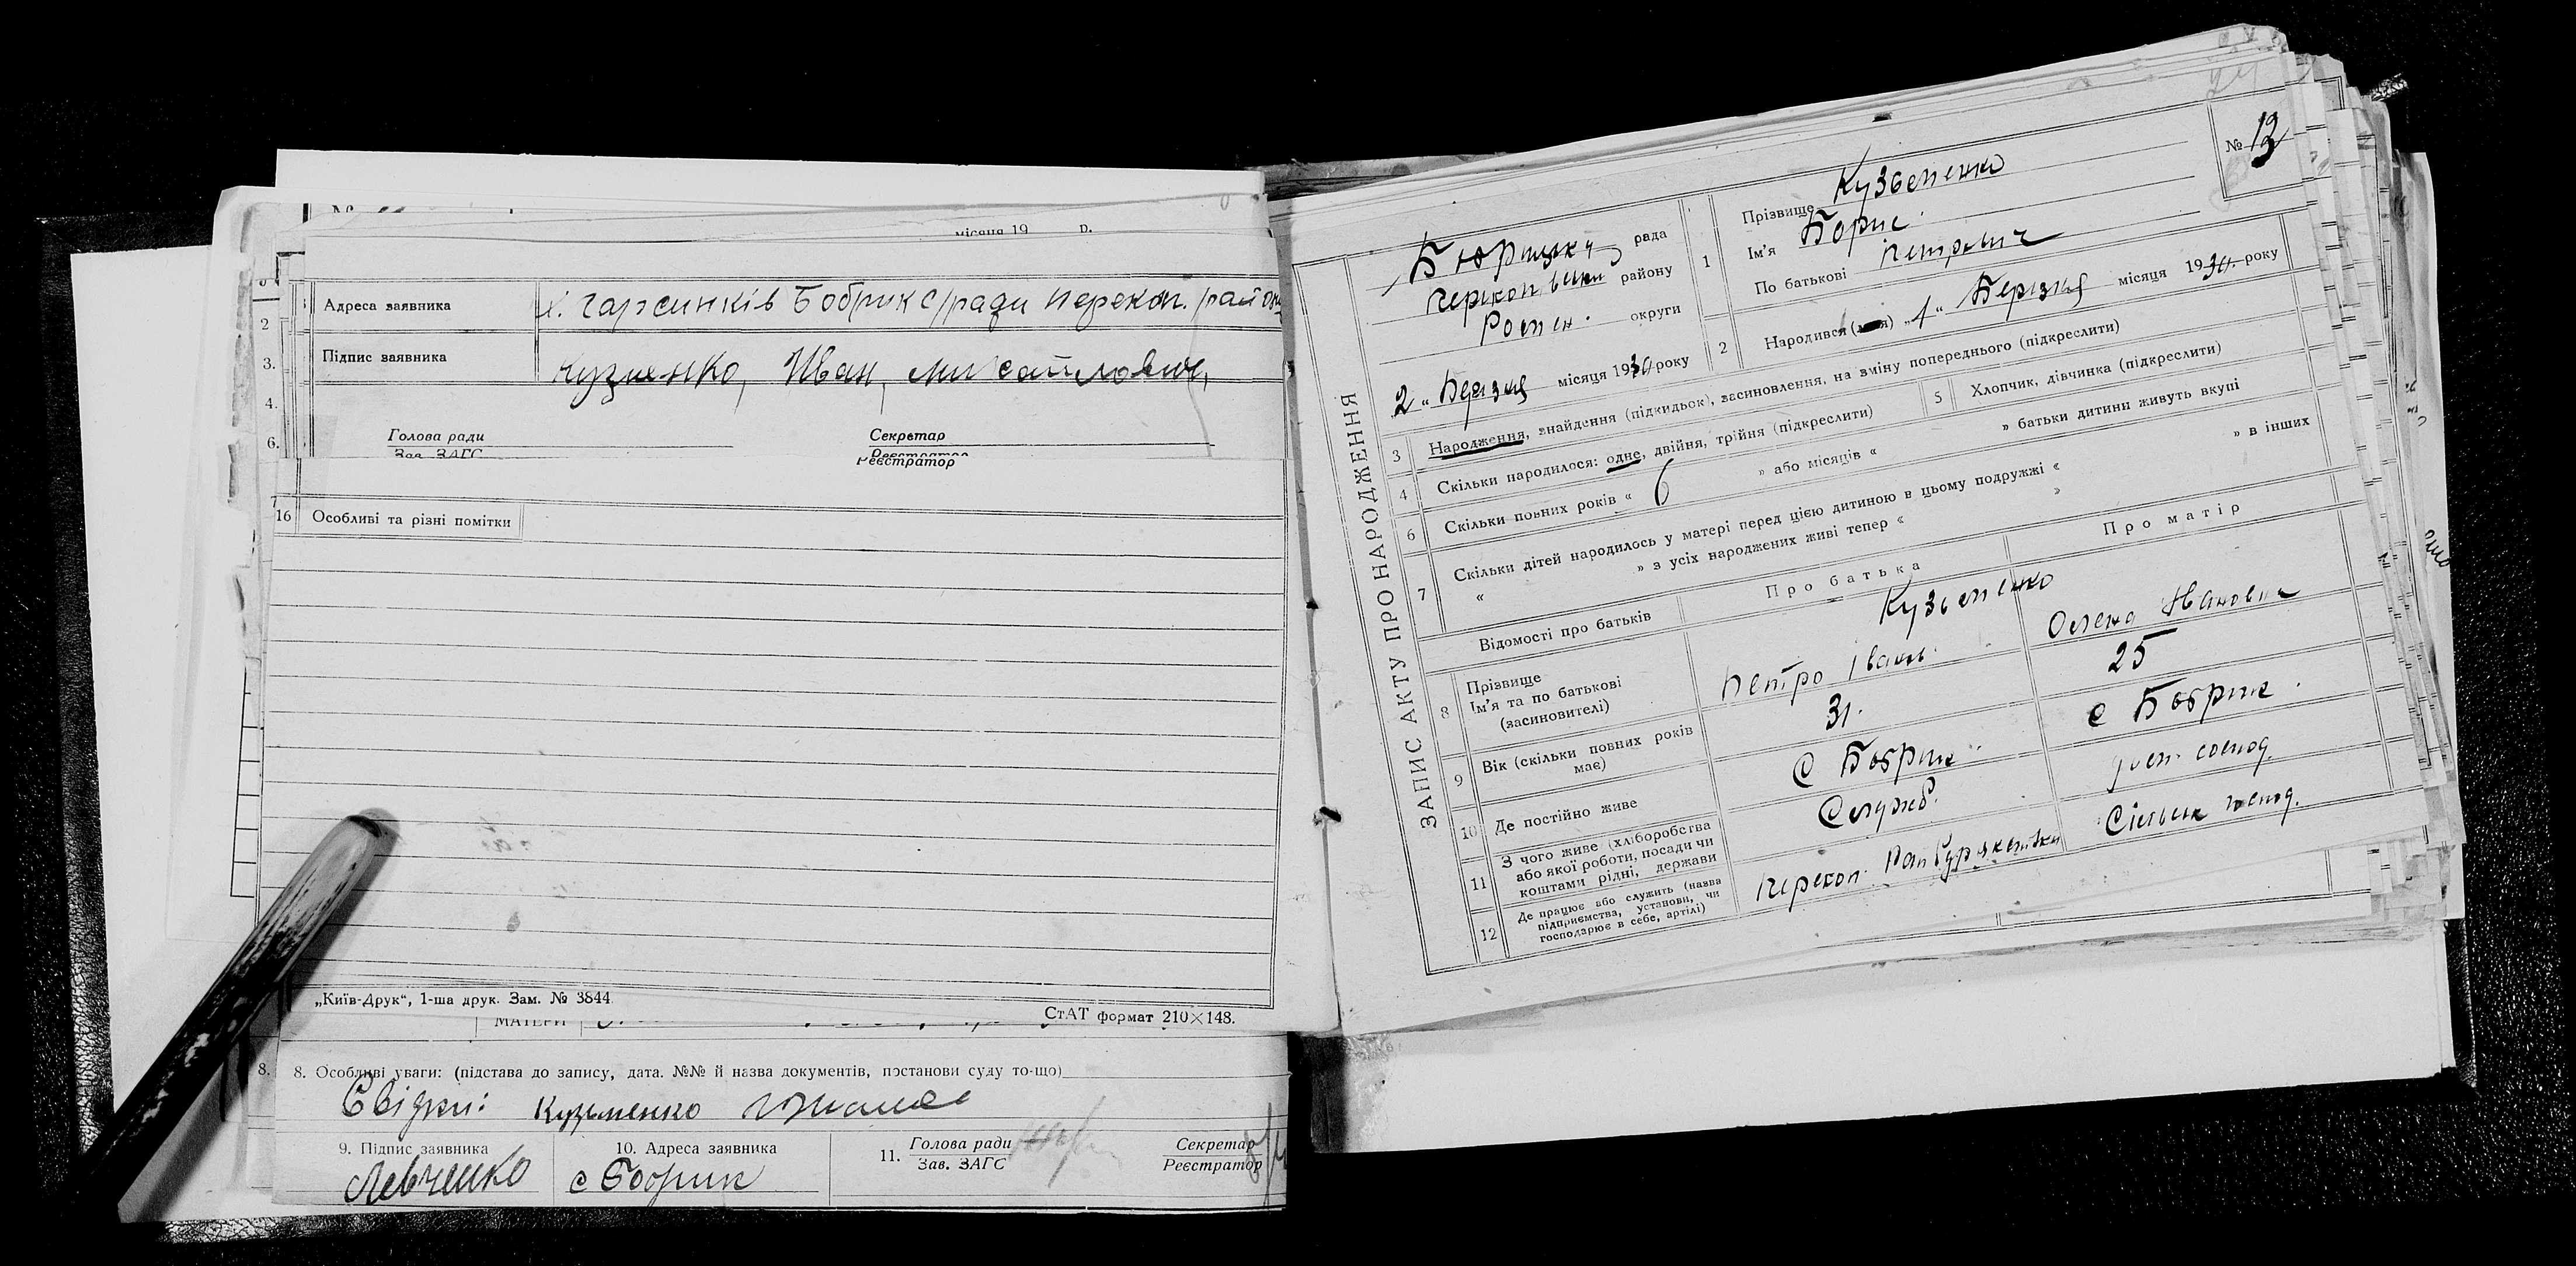 місяця 19 р.
Адреса заявника х. Гарсинків Бобрик с/ради Перекоп. район
Підпис заявника Кузменко, Иван, Михайлович,
Голова ради Секретар
Зав. ЗАГС
Реєстратор
16 Особливі та різні помітки
„Київ-Друк“, 1-ша друк. Зам. № 3844.
СтАТ формат 210×148.
МАТЕРИ
8. Особливі уваги: (підстава до запису, дата. №№ й назва документів, постанови суду то-що)
Свідки: Кузьменко
9. Підпис заявника 10. Адреса заявника 11. Голова ради Секретар
Зав. ЗАГС Реєстратор
Левченко с Бобрик
ЗАПИС АКТУ ПРО НАРОДЖЕННЯ
№ 13
рада
району
Ромен. округи
„2“ Березня місяця 1930 року
1 Прізвище Кузьменко
Ім'я Борис
По батькові Петрович
2 Народився „1“ Березня місяця 1930 року
3 Народження, знайдення (підкидьок), засиновлення, на зміну попереднього (підкреслити)
4 Скільки народилося: одне, двійня, трійня (підкреслити) 5 Хлопчик, дівчинка (підкреслити)
6 Скільки повних років « 6 » або місяців « » батьки дитини живуть вкупі
7 Скільки дітей народилось у матері перед цією дитиною в цьому подружжі « » в інших
« » з усіх народжених живі тепер « »
Відомості про батьків Про батька Про матір
8 Прізвище Кузьменко
Ім'я та по батькові Петро Іванов. Олена Ивановна
(засиновителі)
9 Вік (скільки повних років має) 31. 25
10 Де постійно живе с Бобрик с Бобрик.
11 З чого живе (хліборобства або якої роботи, посади чи коштами рідні, держави Служб.
12 Де працює або служить (назва підприємства, установи, чи господарює в себе, артілі) Перекоп. Сільськ господ.